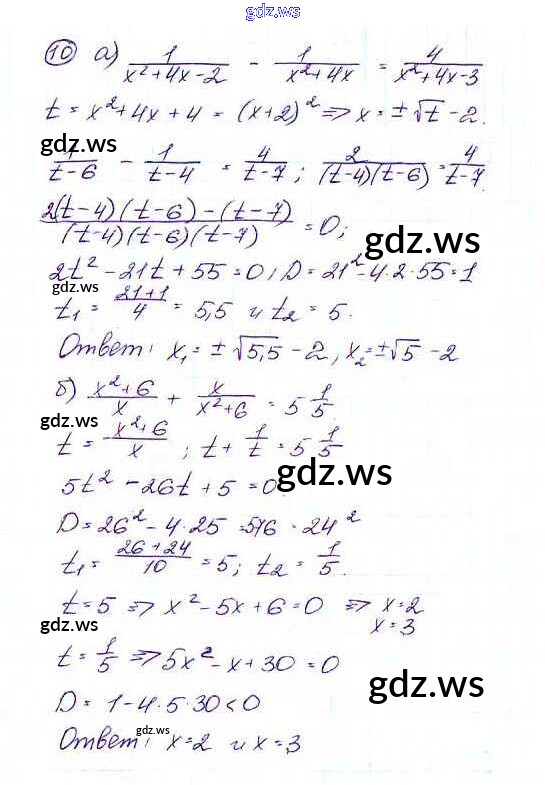 gdz.ws
10 а) 1/(x²+4x-2) - 1/(x²+4x) = 4/(x²+4x-3)
t = x²+4x+4 = (x+2)² => x = ±√t - 2.
gdz.ws
1/(t-6) - 1/(t-4) = 4/(t-7); 2/((t-4)(t-6)) = 4/(t-7).
(2(t-4)(t-6)-(t-7))/((t-4)(t-6)(t-7)) = 0;
gdz.ws
2t² - 21t + 55 = 0; D = 21² - 4·2·55 = 1
t₁ = (21+1)/4 = 5,5 и t₂ = 5.
Ответ: x₁ = ±√5,5 - 2, x₂ = ±√5 - 2
б) (x²+6)/x + x/(x²+6) = 5 1/5.
gdz.ws
t = (x²+6)/x; t + 1/t = 5 1/5
gdz.ws
5t² - 26t + 5 = 0
D = 26² - 4·25 = 576 = 24²
t₁ = (26+24)/10 = 5; t₂ = 1/5.
t = 5 => x² - 5x + 6 = 0 => x = 2
gdz.ws
x = 3
t = 1/5 => 5x² - x + 30 = 0
gdz.ws
D = 1 - 4·5·30 < 0
gdz.ws
Ответ: x = 2 и x = 3